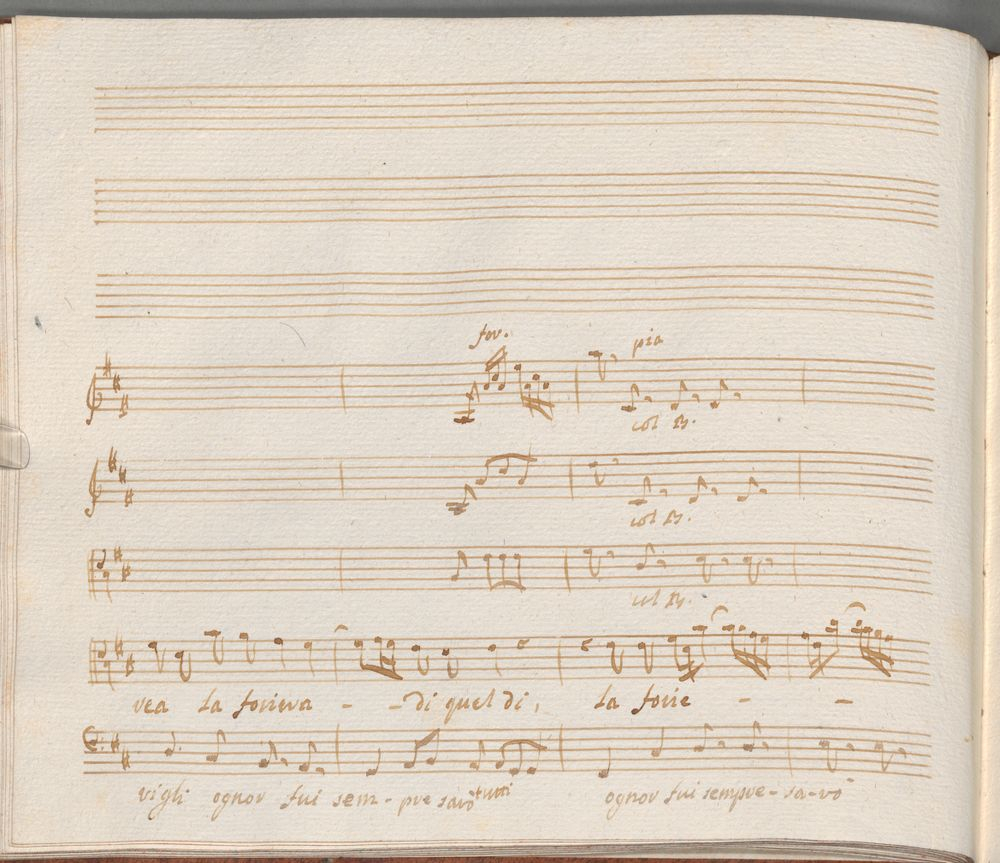 for.
pia
col B.
col B.
col B.
vea la foriera - - di quel di, la forie - -
vigli ognor fui sem - pre sarò tutti ognor fui sempre - sa - rò